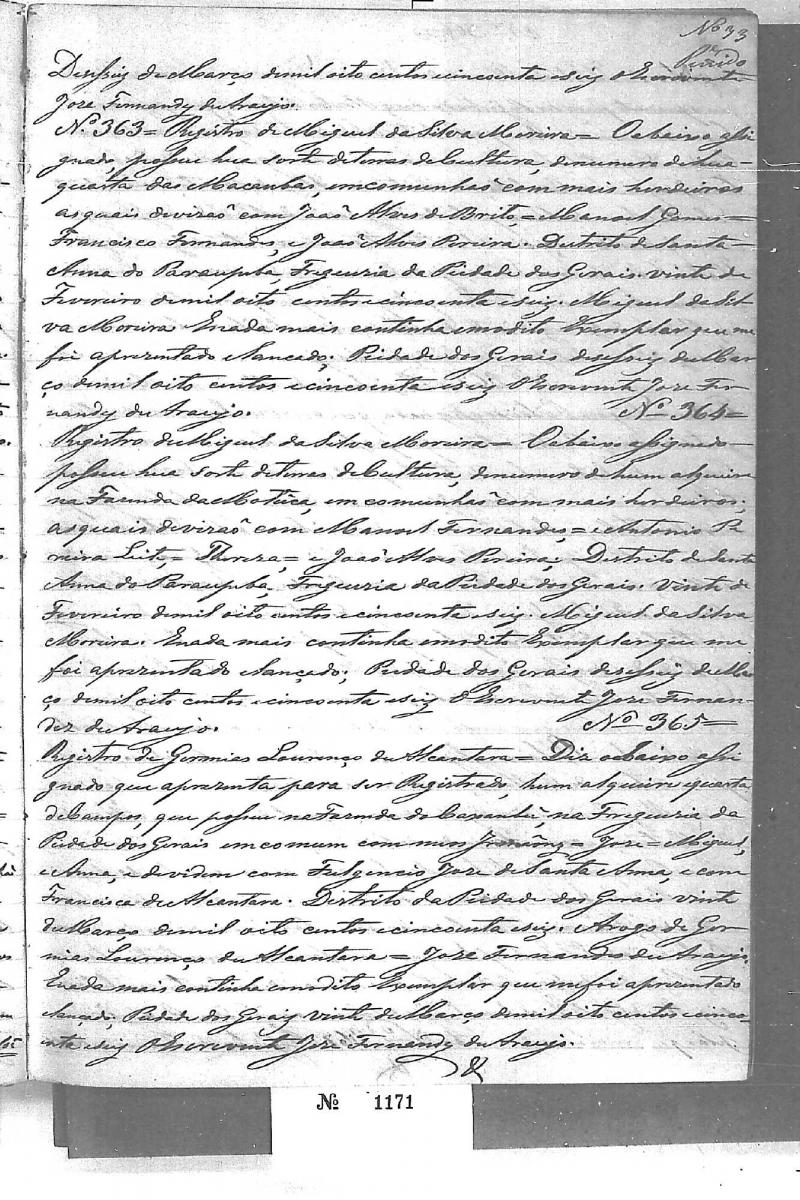 Nº 33
Desesseiz de Março demil oito centos ecincoenta eseiz OEscrevente
Joze Fernandz de Araujo.
Nº 363 = Registro de Miguel da Silva Moreira = Oabaixo assi
gnado, possue hua sorte deterras deCultura, denumero de hua
quarta das Macaubas, emcomunhaõ com mais herdeiros
asquais devizaõ com Joaõ Alves de Brito, = Manoel Gomes =
Francisco Fernandes, e Joaõ Alves Pereira. Destrito de Santa
Anna do Paraupeba, Freguezia da Piedade dos Gerais. vinte de
Fevereiro demil oito centos ecincoenta eseiz. Miguel da Sil
va Moreira Enada mais continha emodito Exemplar que me
foi aprezentado elançado; Piedade dos Gerais desesseiz de Mar
ço demil oito centos ecincoenta eseiz OEscrevente Joze Fer
nandz de Araujo. Nº 364 =
Registro de Miguel da Silva Moreira = Oabaixo assignado
possue hua sorte deterras deCultura, denumero de hum alqueire
na Fazenda da Motuca, em comunhaõ com mais herdeiros;
asquais devizaõ com Manoel Fernandes, = e Antonio Pe
reira Leite, = Thereza, = e Joaõ Alves Pereira; Destrito de Santa
Anna do Paraupeba, Freguezia da Piedade dos Gerais. Vinte de
Fevereiro demil oito centos ecincoenta eseiz. Miguel da Silva
Moreira. Enada mais continha emodito Exemplar que me
foi aprezentado elançado; Piedade dos Gerais desesseiz de Mar
ço demil oito centos ecincoenta eseiz OEscrevente Joze Fernan
dez de Araujo. Nº 365 =
Registro de Germias Lourenço de Alcantara = Diz oabaixo assi
gnado que aprezenta para ser Registrado, hum alqueire equarta
deCampos, que possue na Fazenda do na Freguezia da
Piedade dos Gerais emcomum com meos Irmaõnz = Joze = Miguel,
e Anna, e devidem com Fulgencio Joze de Santa Anna, e com
Francisca de Alcantara. Destrito da Piedade dos Gerais vinte
de Março demil oito centos ecincoenta eseiz. Arogo de Ger
mias Lourenço de Alcantara = Joze Fernandes de Araujo.
Enada mais continha emodito Exemplar que mefoi aprezentado
elançado; Piedade dos Geraiz vinte de Março demil oito centos ecinco
enta eseiz OEscrevente Joze Fernandz de Araujo.
Nº 1171